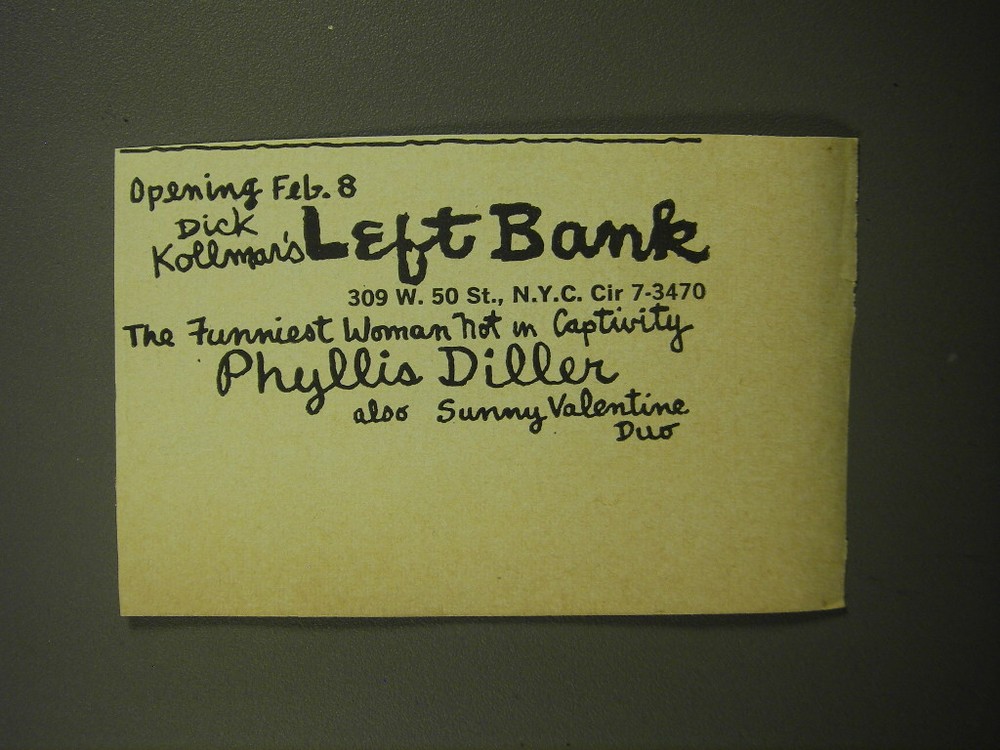 Opening Feb. 8
Dick
Kollmar's Left Bank
309 W. 50 St., N.Y.C. Cir 7-3470
The Funniest Woman Not in Captivity
Phyllis Diller
also Sunny Valentine
Duo